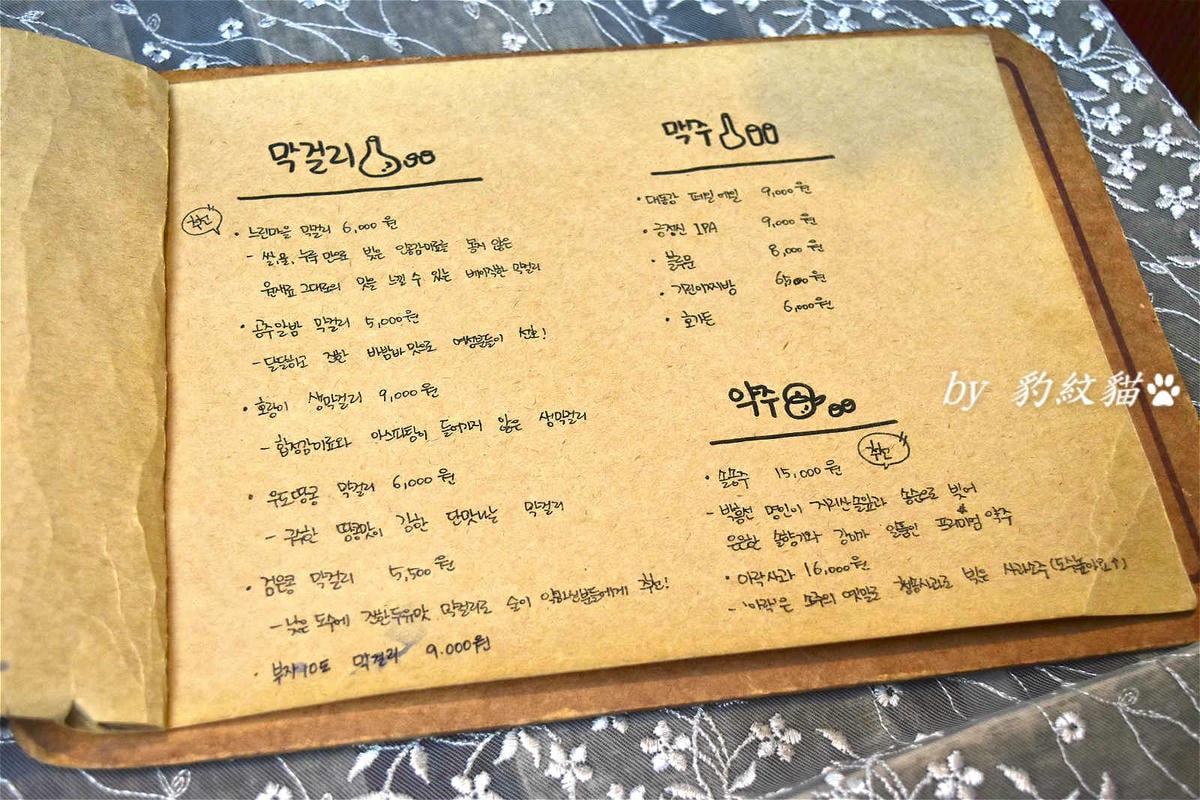 막걸리
추천
· 느린마을 막걸리 6,000원
- 쌀, 물, 누룩 만으로 빚은 인공감미료를 넣지 않은
원재료 그대로의 맛을 느낄 수 있는 베이직한 막걸리
· 공주알밤 막걸리 5,000원
- 달달하고 진한 바밤바 맛으로 여성분들이 선호!
· 호랑이 생막걸리 9,000원
- 합성감미료와 아스파탐이 들어가지 않은 생막걸리
· 우도땅콩 막걸리 6,000원
- 구수한 땅콩맛이 강한 단맛나는 막걸리
· 검은콩 막걸리 5,500원
- 낮은 도수에 진한 두유맛 막걸리로 술이 약하신분들에게 추천!
· 부자10도 막걸리 9.000원
맥주
· 대동강 페일에일 9,000원
· 국민 IPA 9,000원
· 블루문 8,000원
· 기린이찌방 6,500원
· 호가든 6,000원
약주
추천
· 솔송주 15,000원
- 박흥선 명인이 지리산 솔잎과 송순으로 빚어
은은한 솔향기와 감미가 일품인 프리미엄 약주
· 아락사과 16,000원
- '아락'은 소주의 옛말로 청송사과로 빚은 사과소주 (도수높아요↑)
by 豹紋貓